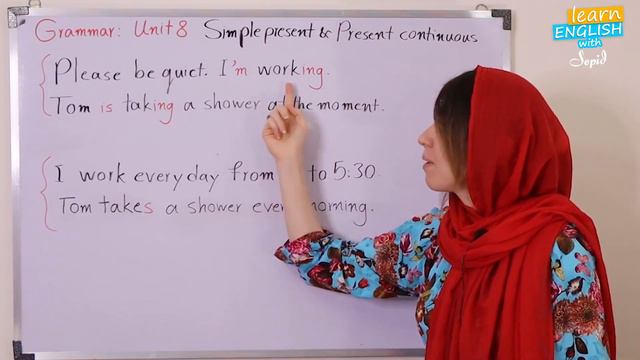 Grammar: Unit 8 Simple present & Present continuous
Please be quiet. I'm working.
Tom is taking a shower at the moment.
I work every day from to 5:30.
Tom takes a shower every morning.
learn
ENGLISH
with
Sepid